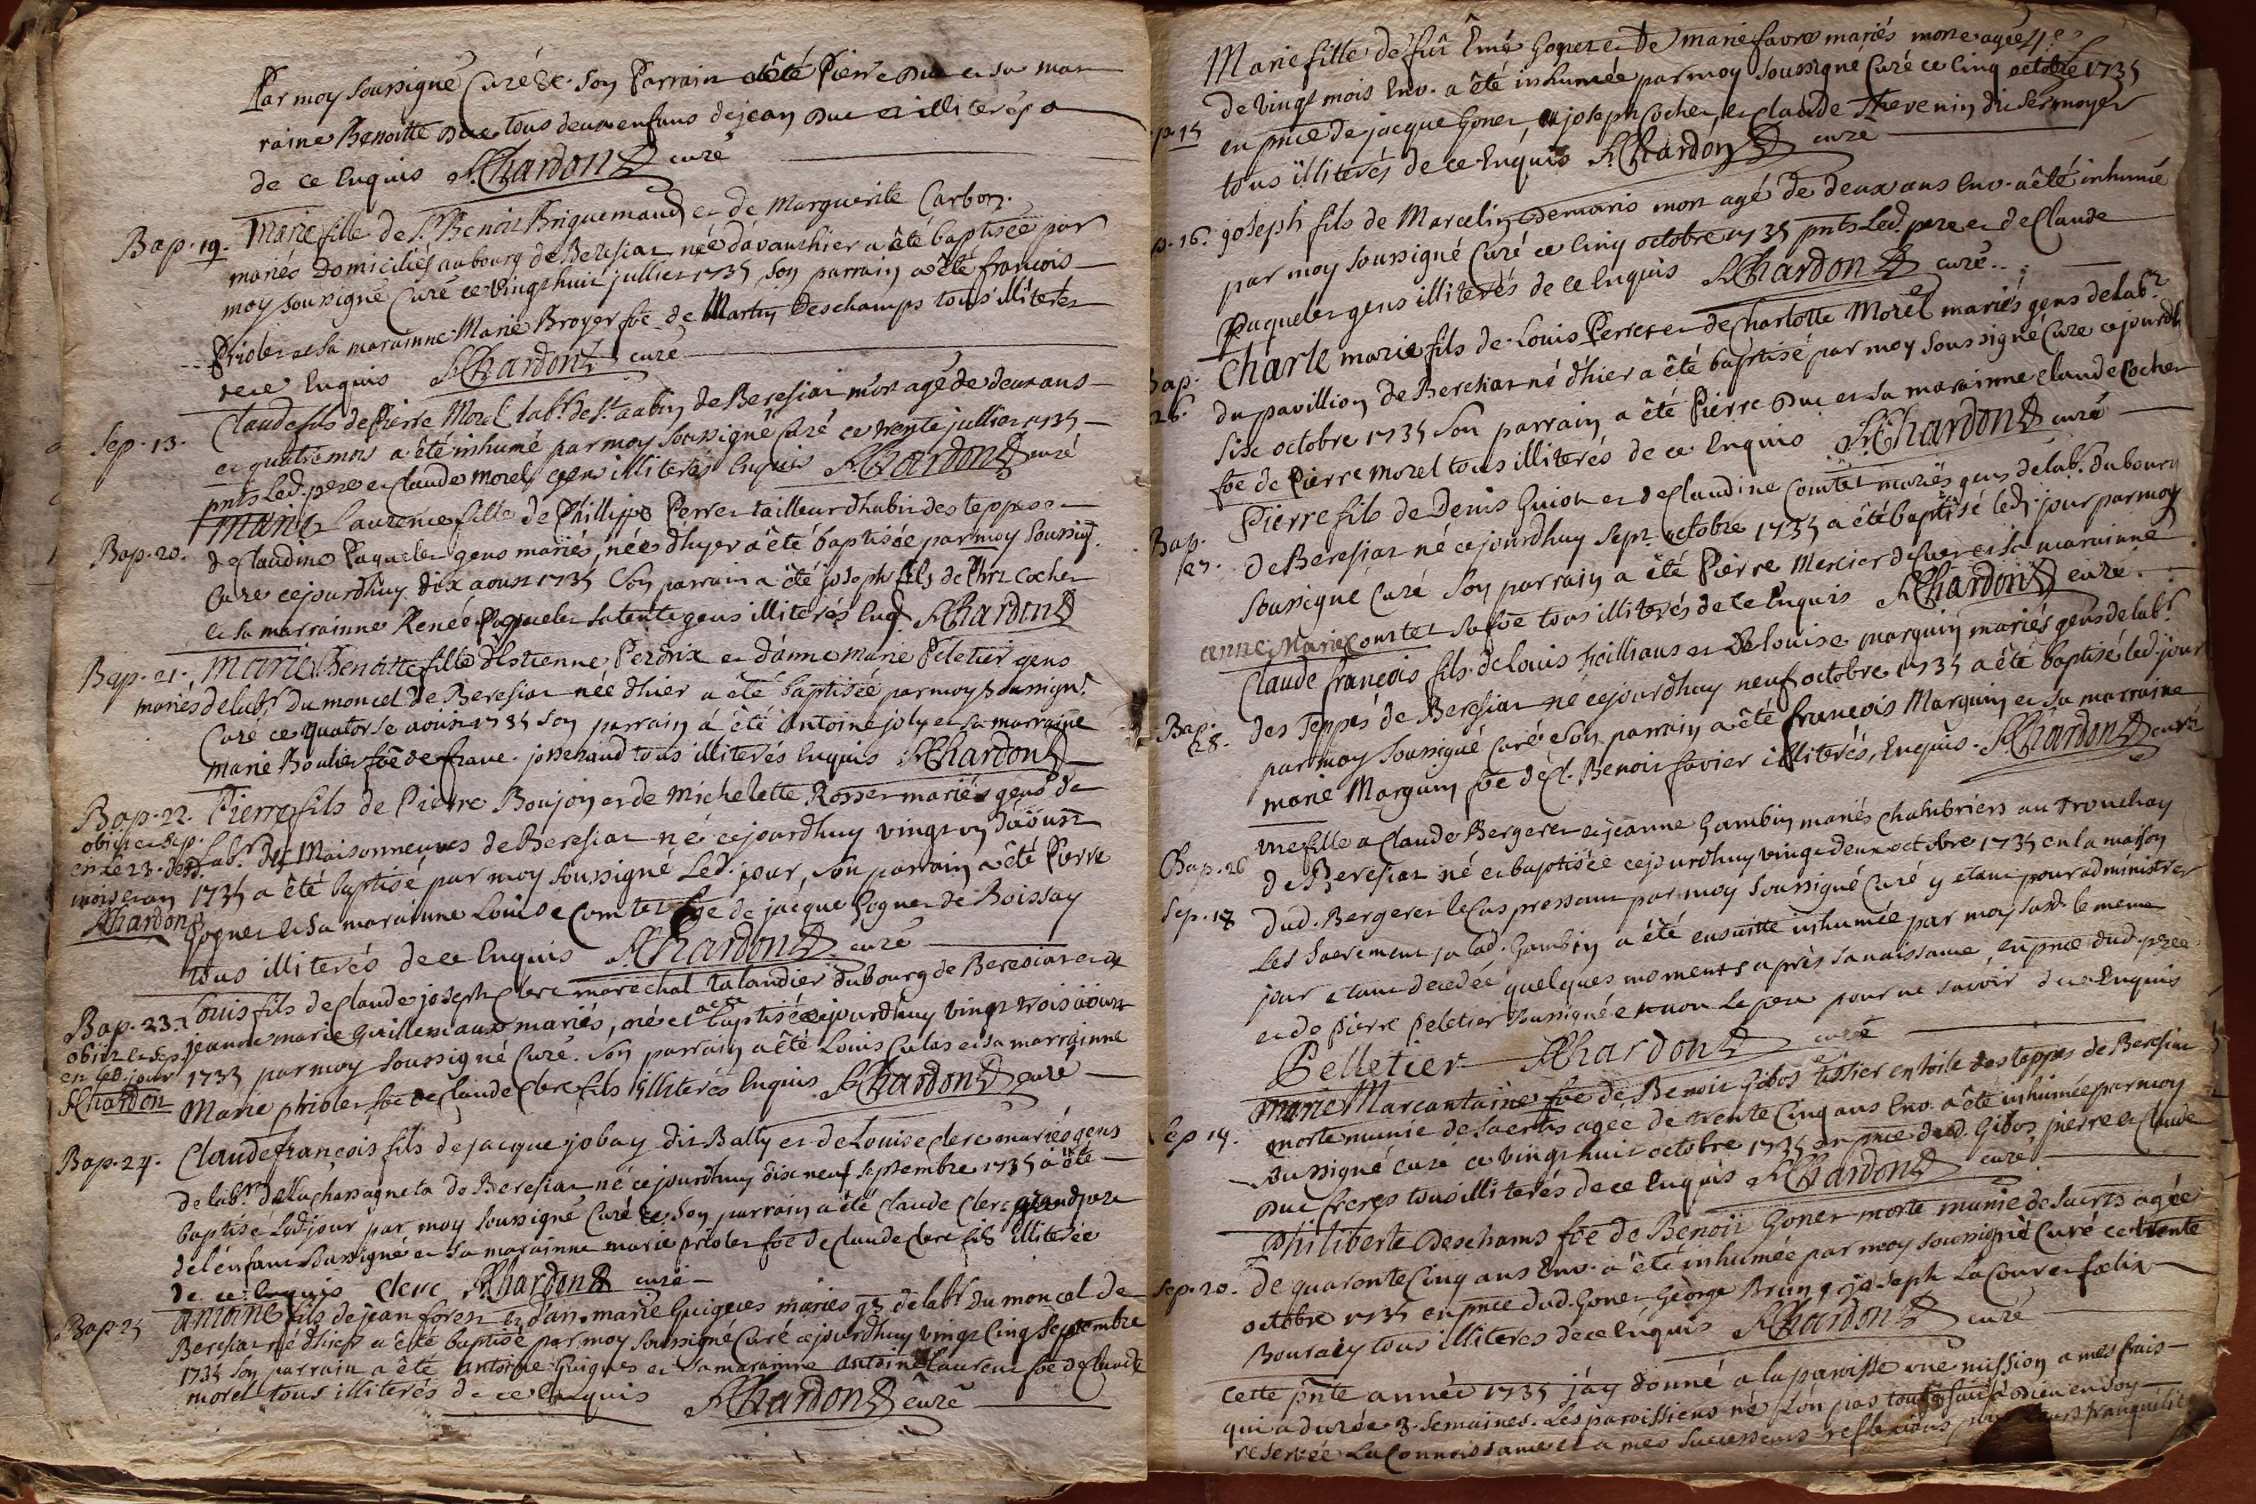 Par moy soussigné Curé &c. son Parrain a êté Pierre Duc et sa mar
raine Benoitte Duc tous deux enfans de jean Duc et illiterés
de ce Enquis A Chardon curé
Bap. 19. Marie fille de Sr. Benoit Briquemaud et de Marguerite Carbon
mariés Domiciliés au bourg de Beresiat née davanthier a êté baptisée par
moy soussigné Curé ce vingt huit juillet 1735 son parrain a êté francois
Prioler et sa marainne Marie Broyer fõe de Martin Deschamps tous illiterés
de ce Enquis A Chardon curé
Sep. 13. Claude fils de Pierre Morel labr. de St. aubin de Beresiat mort agé de deux ans
et quatre mois a êté inhumé par moy soussigné Curé ce trente juillet 1735
pnts Led. pere et Claude Morel, gens illiterés Enquis A Chardon curé
Bap. 20. Marie Laurence fille de Phillippe Perret tailleur dhabit des teppes et
de Claudine Paquelet gens mariés, née dhyer a êté baptisée par moy soussig.
Curé cejourdhuy dix aoust 1735 Son parrain a êté joseph fils de Phrt Cochet
et sa marrainne Renée Paquelet sa tente gens illiterés Enq A Chardon
Bap. 21. Marie Benoitte fille d'Estienne Perdrix et d'anne marie Peletier gens
mariés de labr. du moncel de Beresiat née dhier a êté baptisée par moy soussigné
Curé ce quatorse aoust 1735 son parrain a êté antoine joly et sa marraine
marie Boulier fõe de franc. josserand tous illiterés Enquis A Chardon
Bap. 22. Pierre fils de Pierre Boujon et de Michelette Rosset mariés gens de
obiit et sep. labr. des Maisonneuves de Beresiat né cejourdhuy vingt un d'aöust
en le 23. desd. mois et an 1735 a êté baptisé par moy soussigné Led. jour, son parrain a êté Pierre
A Chardon Gognet et sa marainne Louise Comtet fõe de jacque Gognet de Boissay
tous illiterés de ce Enquis A Chardon curé
Bap. 23. Louis fils de Claude joseph Clerc marechal talandier du bourg de Beresiat et de
obiit et sep. jeanne marie Guillemiaux mariés, né et a êté baptisé cejourdhuy vingt trois äoust
en led. jour 1735 par moy soussigné Curé. Son parrain a êté Louis Culas et sa marrainne
A Chardon Marie prioler fõe de Claude Clerc fils illiterés Enquis A Chardon curé
Bap. 24. Claude françois fils de jacque jobay dit Bally et de Louise Clerc mariés gens
de labr. de la chassagneta de Beresiat né ce jourdhuy dix neuf septembre 1735 a êté
baptisé Led. jour par moy soussigné Curé &c Son parrain a êté Claude Clerc grandpere
de l'enfant soussigné et sa marainne marie prioler fõe de Claude Clerc fils illiterée
de ce Enquis Clerc A Chardon curé
Bap. 25 antoine fils de jean foret et d'ann. marie Guigues mariés gs de labr. du moncel de
Beresiat né dhier a êté baptisé par moy soussigné Curé cejourdhuy vingt Cinq Septembre
1735 Son parrain a êté antoine Guigues et sa marainne antoine laurent fõe de Claude
morel tous illiterés de ce Enquis A Chardon curé
Marie fille de fût Emé Gonet et De marie favre mariés morte agée
de vingt mois Env. a êté inhumée par moy soussigné Curé ce Cinq octobre 1735
p. 15 en pnce de jacque Gonet, joseph Cochet, et Claude Thevenin dit Sermoyer
tous illiterés de ce Enquis A Chardon curé
p. 16. joseph fils de Marcelin Demaris mort agé de deux ans Env. a êté inhumé
par moy soussigné Curé ce Cinq octobre 1735 pnts Led. pere et de Claude
Paquelet gens illiterés de ce Enquis A Chardon curé
Bap. 26. Charle marie fils de Louis Perret et de Charlotte Morel mariés gens de labr.
du pavillion de Beresiat né d'hier a êté baptisé par moy soussigné Curé cejourdh
sixe octobre 1735 Son parrain a êté Pierre Duc et sa marainne Claude Cochet
fõe de Pierre Morel tous illiterés de ce Enquis A Chardon curé
Bap. 27. Pierre fils de Denis Guion et de Claudine Comtet mariés gens de lab. du bourg
de Beresiat né ce jourdhuy sept octobre 1735 a êté baptisé led. jour par moy
soussigné Curé Son parrain a êté Pierre Mercier de Cuet et sa marainne
anne Marie Comtet sa fõe tous illiterés de ce Enquis A Chardon curé
Bap. 28. Claude françois fils de Louis foilliaus et de Louise marguin mariés gens de labr.
des Teppes de Beresiat né cejourdhuy neuf octobre 1735 a êté baptisé led. jour
par moy soussigné Curé Son parrain a êté françois Marguin et sa marraine
marie Marguin fõe de Benoit favier illiterés, Enquis. A Chardon curé
Bap. 26 une fille a Claude Bergeret et jeanne Gambin mariés Chambriers au Tronchay
Sep. 18 de Beresiat né et baptisée cejourdhuy vingt deux octobre 1735 en la maison
dud. Bergeret le Cas pressant par moy soussigné Curé y etant pour administrer
Les Sacrement a lad. Gambin a êté ensuitte inhumée par moy susd. le meme
jour etant decedée quelques moments après sa naissance, en pnce dud. pere
et de Pierre Peletier soussigné et non le pere pour ne savoir de ce Enquis
Pelletier A Chardon curé
Sep. 19. Marie Marcantaine fõe de Benoit Gibos tissier en toile des teppes de Beresiat
morte munie de Sacrts agée de trente Cinq ans Env. a êté inhumée par moy
soussigné Curé ce vingt huit octobre 1735 en pnce dud. Gibos, pierre et Claude
Duc freres tous illiterés de ce Enquis A Chardon curé
Sep. 20. Philiberte Deschams fõe de Benoit Gonet morte munie de Sacrts agée
de quarente Cinq ans Env. a êté inhumée par moy soussigné Curé ce trente
octobre 1735 en pnce dud. Gonet, George Brun, joseph La Cour et foelix
Bouraly tous illiteres de ce Enquis A Chardon curé
Cette pnte année 1735 j'ay donné a la paroisse une mission a mes frais
qui a durée 3. semaines. Les paroissiens ne l'on pas toute dieu en soy
reservée La Connoissance et a mes successeurs reflexions, pour tranquilité